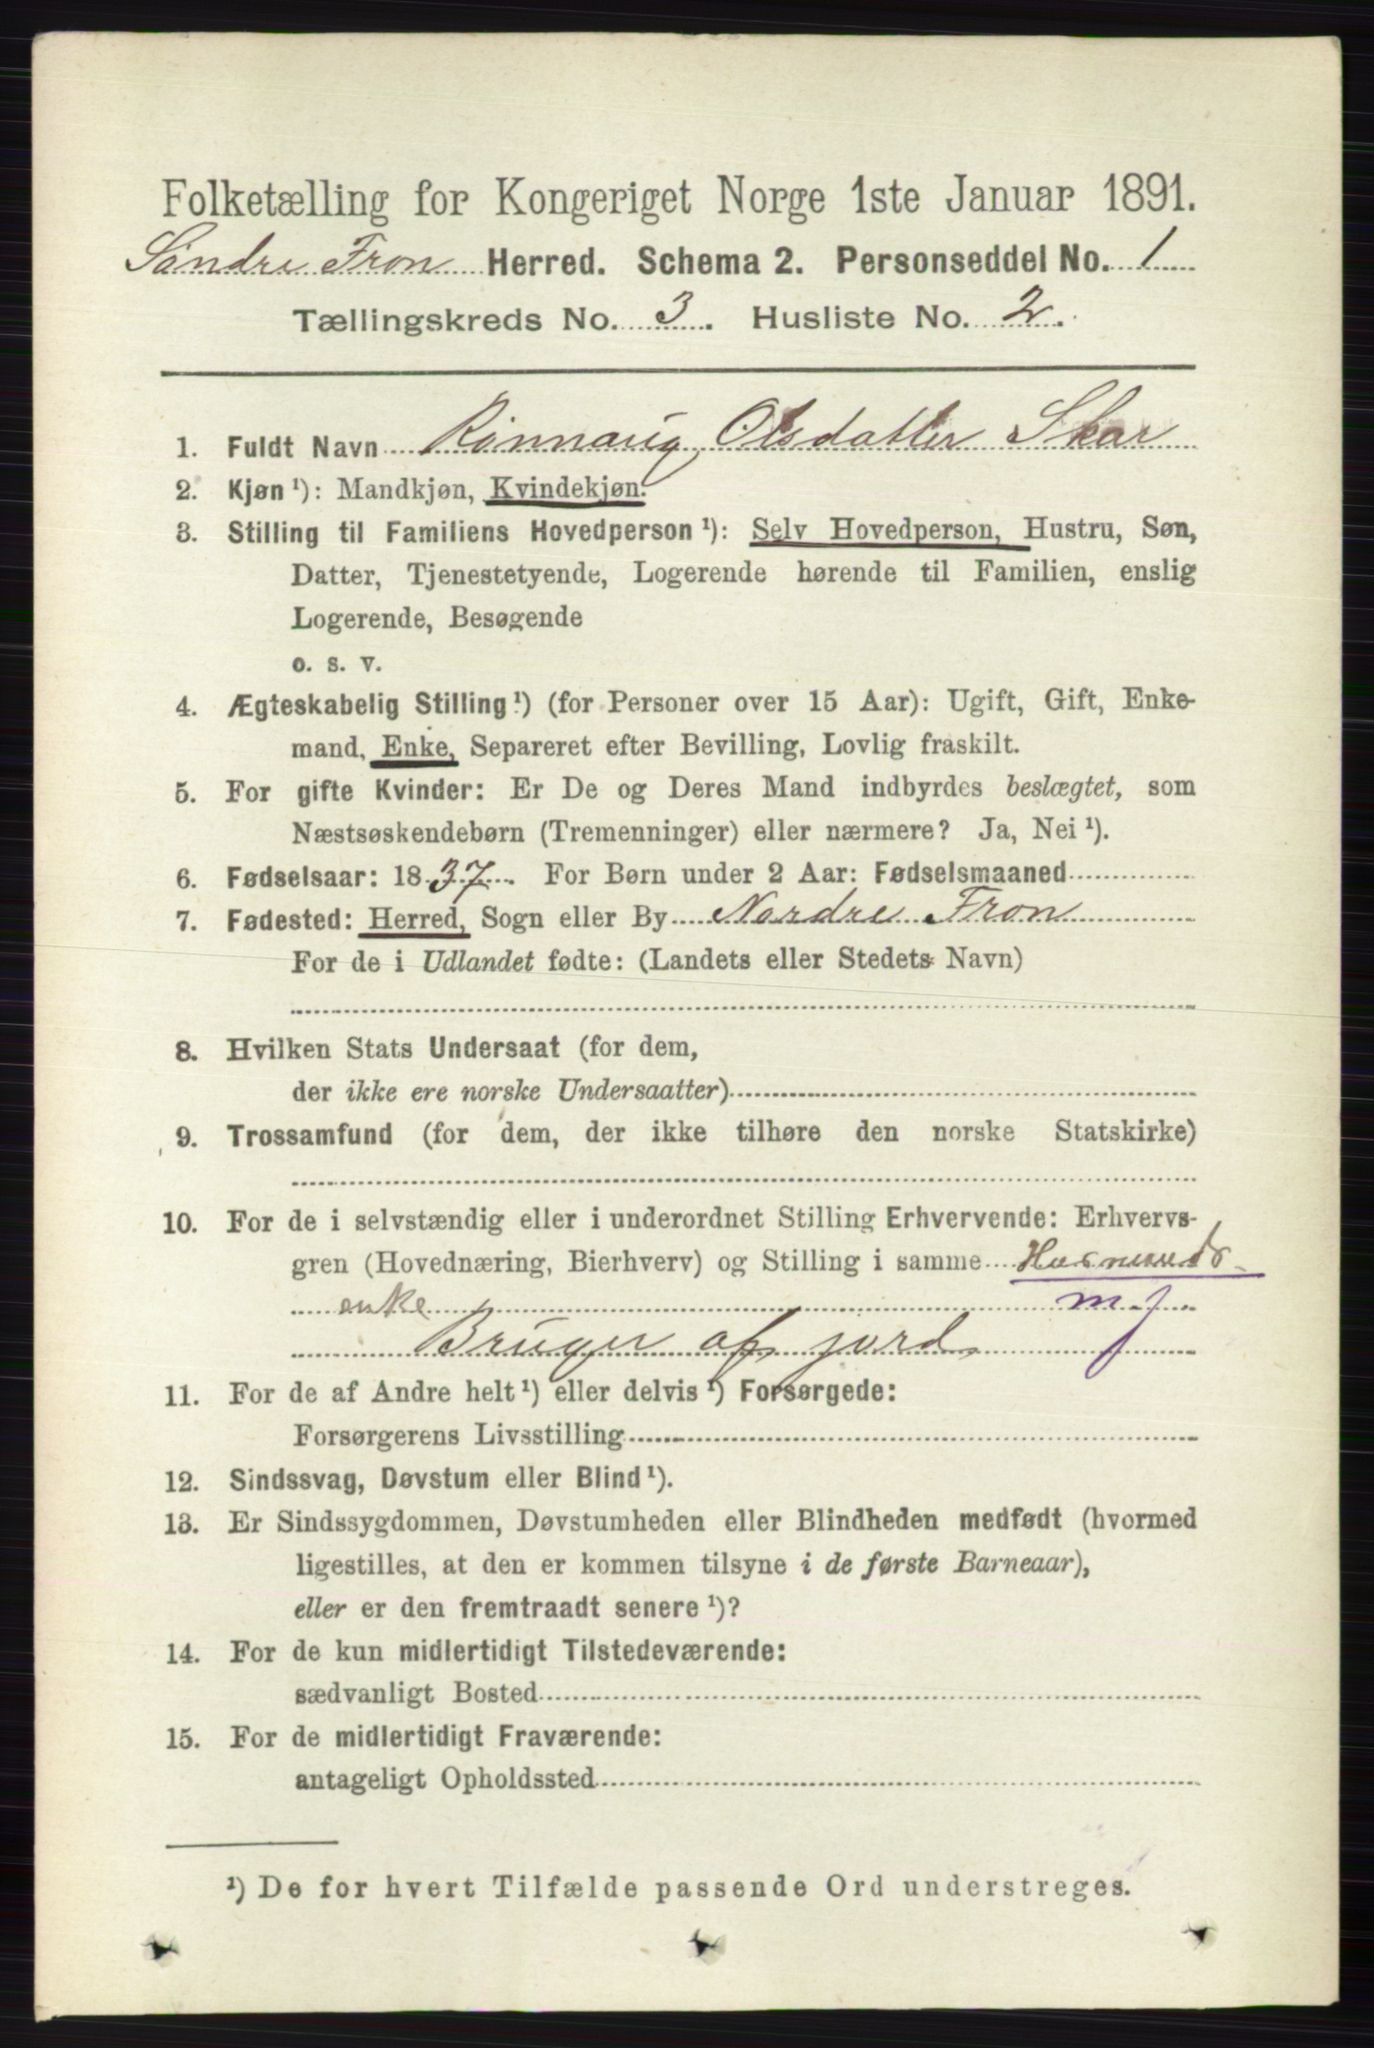 Folketælling for Kongeriget Norge 1ste Januar 1891.
Søndre Fron Herred. Schema 2. Personseddel No. 1
Tællingskreds No. 3. Husliste No. 2.
1. Fuldt Navn Rønnaug Olsdatter Skar
2. Kjøn ¹): Mandkjøn, Kvindekjøn.
3. Stilling til Familiens Hovedperson ¹): Selv Hovedperson, Hustru, Søn,
Datter, Tjenestetyende, Logerende hørende til Familien, enslig
Logerende, Besøgende
o. s. v.
4. Ægteskabelig Stilling ¹) (for Personer over 15 Aar): Ugift, Gift, Enke-
mand, Enke, Separeret efter Bevilling, Lovlig fraskilt.
5. For gifte Kvinder: Er De og Deres Mand indbyrdes beslægtet, som
Næstsøskendebørn (Tremenninger) eller nærmere? Ja, Nei ¹).
6. Fødselsaar: 1837. For Børn under 2 Aar: Fødselsmaaned
7. Fødested: Herred, Sogn eller By Nordre Fron
For de i Udlandet fødte: (Landets eller Stedets Navn)
8. Hvilken Stats Undersaat (for dem,
der ikke ere norske Undersaatter)
9. Trossamfund (for dem, der ikke tilhøre den norske Statskirke)
10. For de i selvstændig eller i underordnet Stilling Erhvervende: Erhvervs-
gren (Hovednæring, Bierhverv) og Stilling i samme Husmands-
enke m. j.
Bruger af jord
11. For de af Andre helt ¹) eller delvis ¹) Forsørgede:
Forsørgerens Livsstilling
12. Sindssvag, Døvstum eller Blind ¹).
13. Er Sindssygdommen, Døvstumheden eller Blindheden medfødt (hvormed
ligestilles, at den er kommen tilsyne i de første Barneaar),
eller er den fremtraadt senere ¹)?
14. For de kun midlertidigt Tilstedeværende:
sædvanligt Bosted
15. For de midlertidigt Fraværende:
antageligt Opholdssted
¹) De for hvert Tilfælde passende Ord understreges.